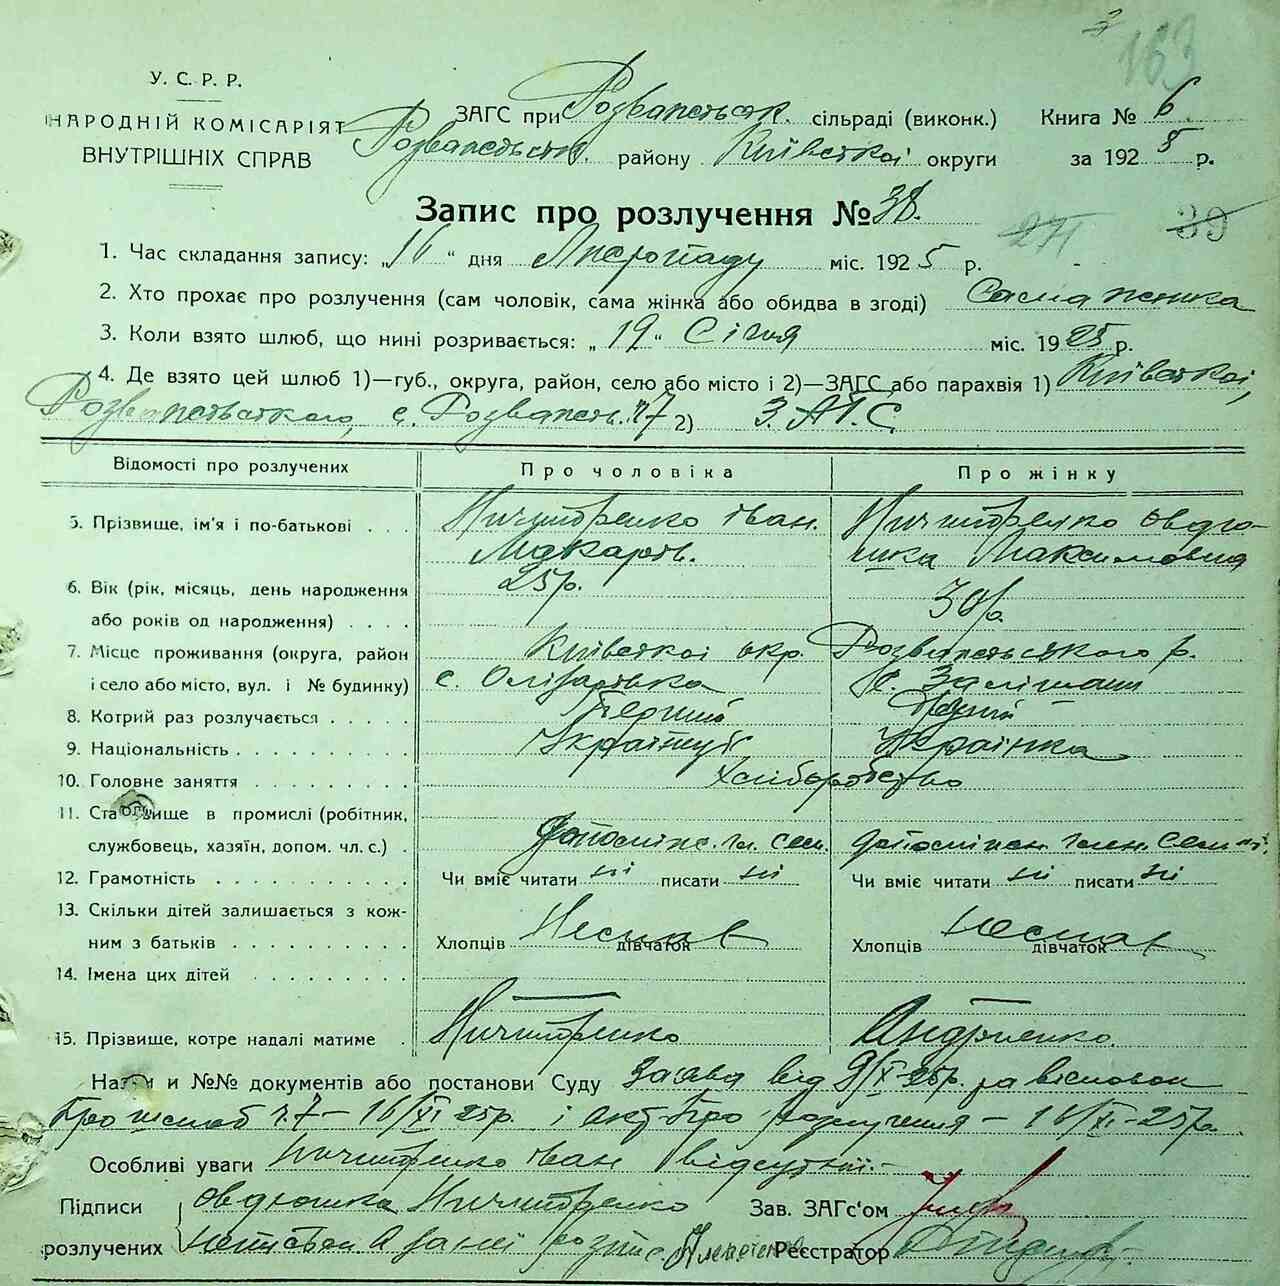 163
У. С. Р. Р.
НАРОДНІЙ КОМІСАРІЯТ
ВНУТРІШНІХ СПРАВ
ЗАГС при Розважевськ. сільраді (виконк.) Книга № 6
Розважевськ. району Київської округи за 1925 р.
Запис про розлучення № 38.
271 39
1. Час складання запису: „16“ дня Листопаду міс. 1925 р.
2. Хто прохає про розлучення (сам чоловік, сама жінка або обидва в згоді) Сама жінка
3. Коли взято шлюб, що нині розривається: „19“ Січня міс. 1925 р.
4. Де взято цей шлюб 1)—губ., округа, район, село або місто і 2)—ЗАГС або парахвія 1) Київської,
Розважевського, с. Розважев. ч 7 2) З.А.Г.С.
Відомості про розлучених Про чоловіка Про жінку
5. Прізвище, ім'я і по-батькові . . . Ничипоренко Іван. Ничипоренко Овдю-
Макаров. шка Максимовна
6. Вік (рік, місяць, день народження 25 р.
або років од народження) . . . . 30 р.
7. Місце проживання (округа, район Київської окр. Розважевського р.
і село або місто, вул. і № будинку) с. Олізарівка с. Залішани
8. Котрий раз розлучається . . . . . Перший Перший
9. Національність . . . . . . . . . . Українець Українка
10. Головне заняття . . . . . . . . . Хліборобство
11. Становище в промислі (робітник,
службовець, хазяїн, допом. чл. с.) . допоміж. чл. сем. допоміжн. член. семні.
12. Грамотність . . . . . . . . . . . Чи вміє читати ні писати ні Чи вміє читати ні писати ні
13. Скільки дітей залишається з кож-
ним з батьків . . . . . . . . . . Хлопців Немає дівчаток Хлопців Немає дівчаток
14. Імена цих дітей . . . . . . . . .
15. Прізвище, котре надалі матиме . Ничипоренко Андриенко
Назви и №№ документів або постанови Суду Заява від 9/X-25р. за
Про шлюб ч.7 – 16/XI-25р. і акт про розлучення – 16/XI-25р.
Особливі уваги Ничипоренко Іван відсутній.–
Підписи Овдюшка Ничипоренко Зав. ЗАГс'ом
розлучених Неписьмен А за неї розпис. Реєстратор